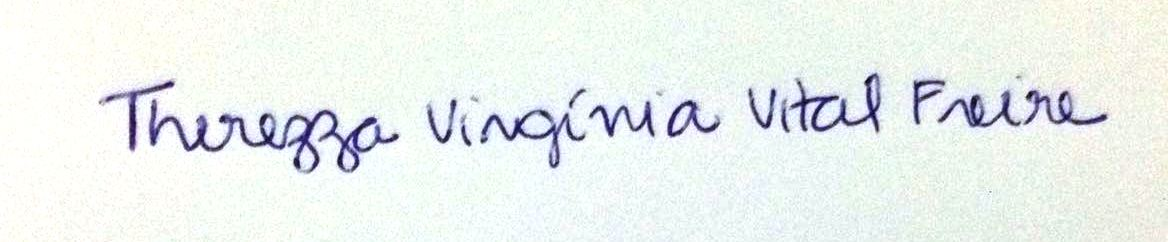 Therezza Virgínia Vital Freire